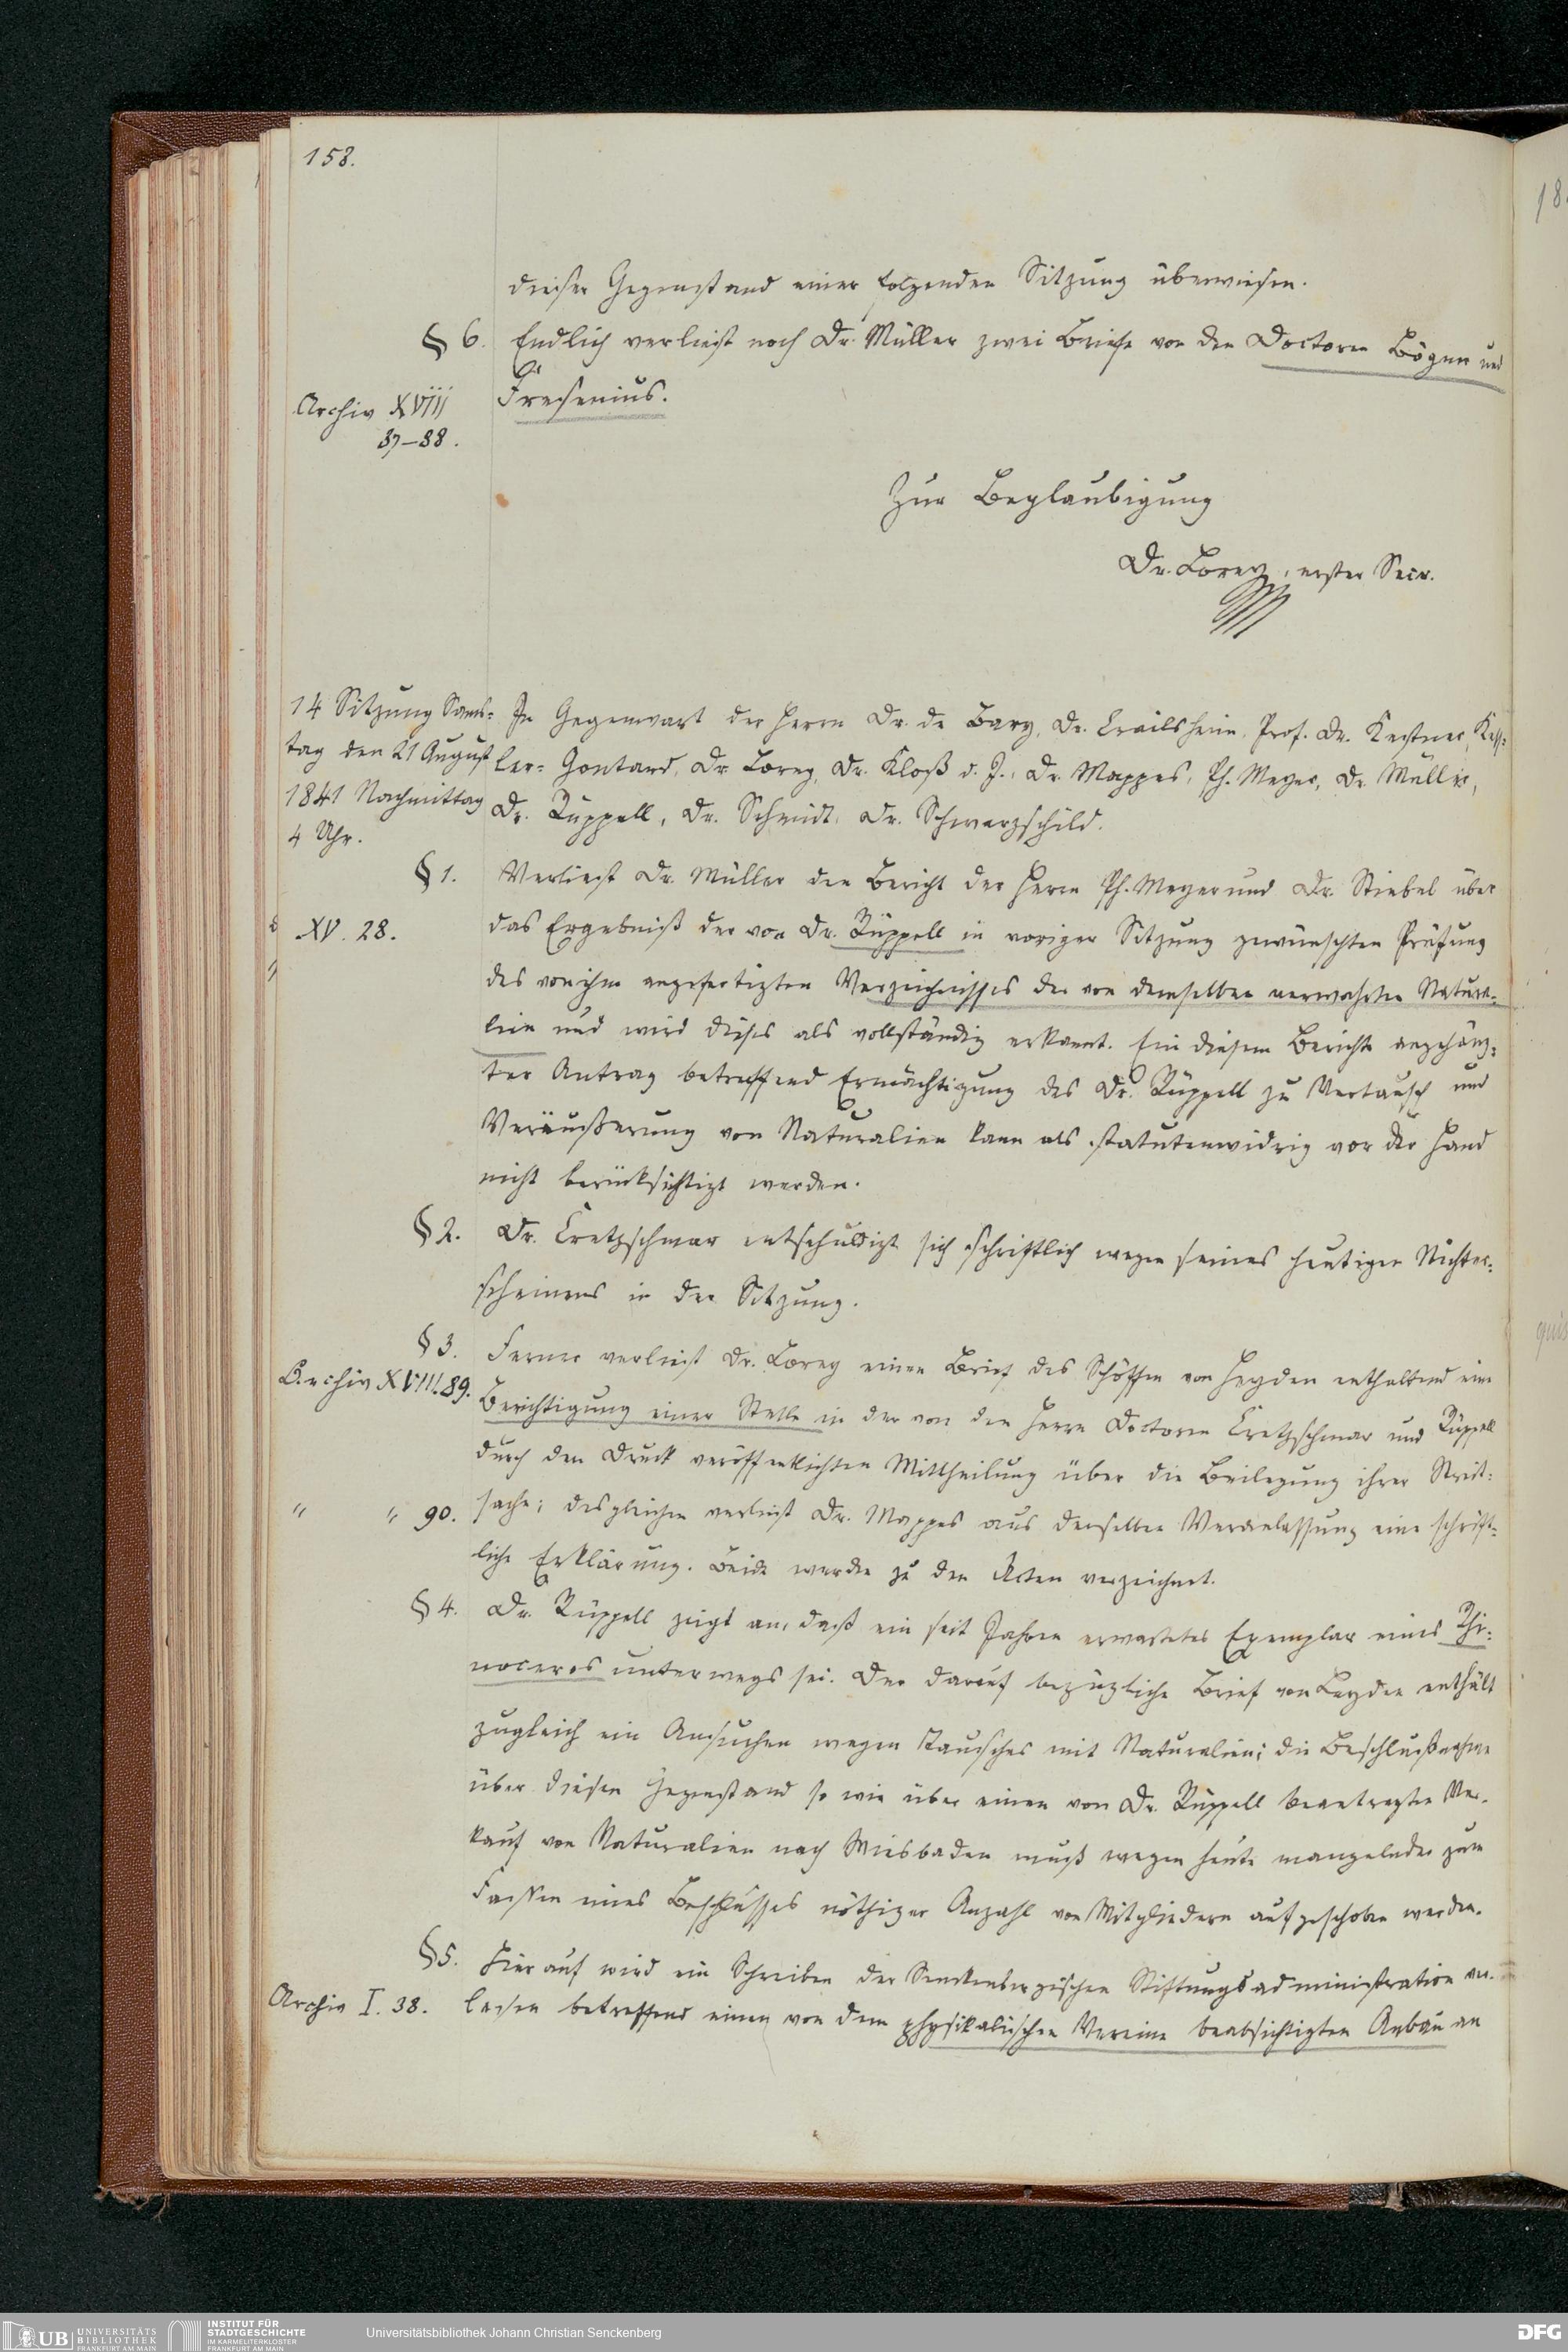 158.
dieser Gegenstand einer folgenden Sitzung überwiesen.
§ 6. Endlich verliest noch Dr. Müller zwei Briefe von den Doctoren Bögner und
Fresenius.
Archiv XVIII
87–88.
Zur Beglaubigung
Dr. Lorey, erster Secr.
14 Sitzung Sams=
tag den 21 August
1841 Nachmittag
4 Uhr.
In Gegenwart der Herrn Dr. de Bary, Dr. Crailsheim, Prof. Dr. Kestner, Kess=
ler=Gontard, Dr. Lorey, Dr. Kloß d. J., Dr. Mappes, Ph. Meyer, Dr. Müller,
Dr. Rüppell, Dr. Schmidt, Dr. Schwarzschild.
§ 1. Verliest Dr. Müller den Bericht der Herrn Ph. Meyer und Dr. Stiebel über
XV. 28. das Ergebniß der von Dr. Rüppell in voriger Sitzung gewünschten Prüfung
des von ihm angefertigten Verzeichnisses der von demselben verwahrten Natura=
lien und wird dieses als vollständig erkannt. Ein diesem Berichte angehäng=
ter Antrag betreffend Ermächtigung des Dr. Rüppell zu Vertausch und
Veräußerung von Naturalien kann als statutenwidrig vor der Hand
nicht berücksichtigt werden.
§ 2. Dr. Cretzschmar entschuldigt sich schriftlich wegen seines heutigen Nichter=
scheinens in der Sitzung.
§ 3. Ferner verliest Dr. Lorey einen Brief des Schöffen von Heyden enthaltend eine
Archiv XVIII. 89. Berichtigung einer Stelle in der von den Herrn Doctoren Cretzschmar und Rüppell
durch den Druck veröffentlichten Mittheilung über die Beilegung ihrer Streit=
" " 90. sache; desgleichen verliest Dr. Mappes aus derselben Veranlassung eine schrift=
liche Erklärung. Beide werden zu den Acten verzeichnet.
§ 4. Dr. Rüppell zeigt an, daß ein seit Jahren erwartetes Exemplar eines Rhi=
noceros unterwegs sei. Der darauf bezügliche Brief von Leyden enthält
zugleich ein Ansuchen wegen Tausches mit Naturalien; die Beschlußnahme
über diesen Gegenstand so wie über einen von Dr. Rüppell beantragten Ver=
kauf von Naturalien nach Wiesbaden muß wegen heute mangelnder zum
Fassen eines Beschlusses nöthiger Anzahl von Mitgliedern aufgeschoben werden.
§ 5. Hierauf wird ein Schreiben der Senckenbergischen Stiftungsadministration ver=
Archiv I. 38. lesen betreffend einen von dem physikalischen Vereine beabsichtigten Anbau an
UB UNIVERSITÄTS
BIBLIOTHEK
FRANKFURT AM MAIN
INSTITUT FÜR
STADTGESCHICHTE
IM KARMELITERKLOSTER
FRANKFURT AM MAIN
Universitätsbibliothek Johann Christian Senckenberg
DFG